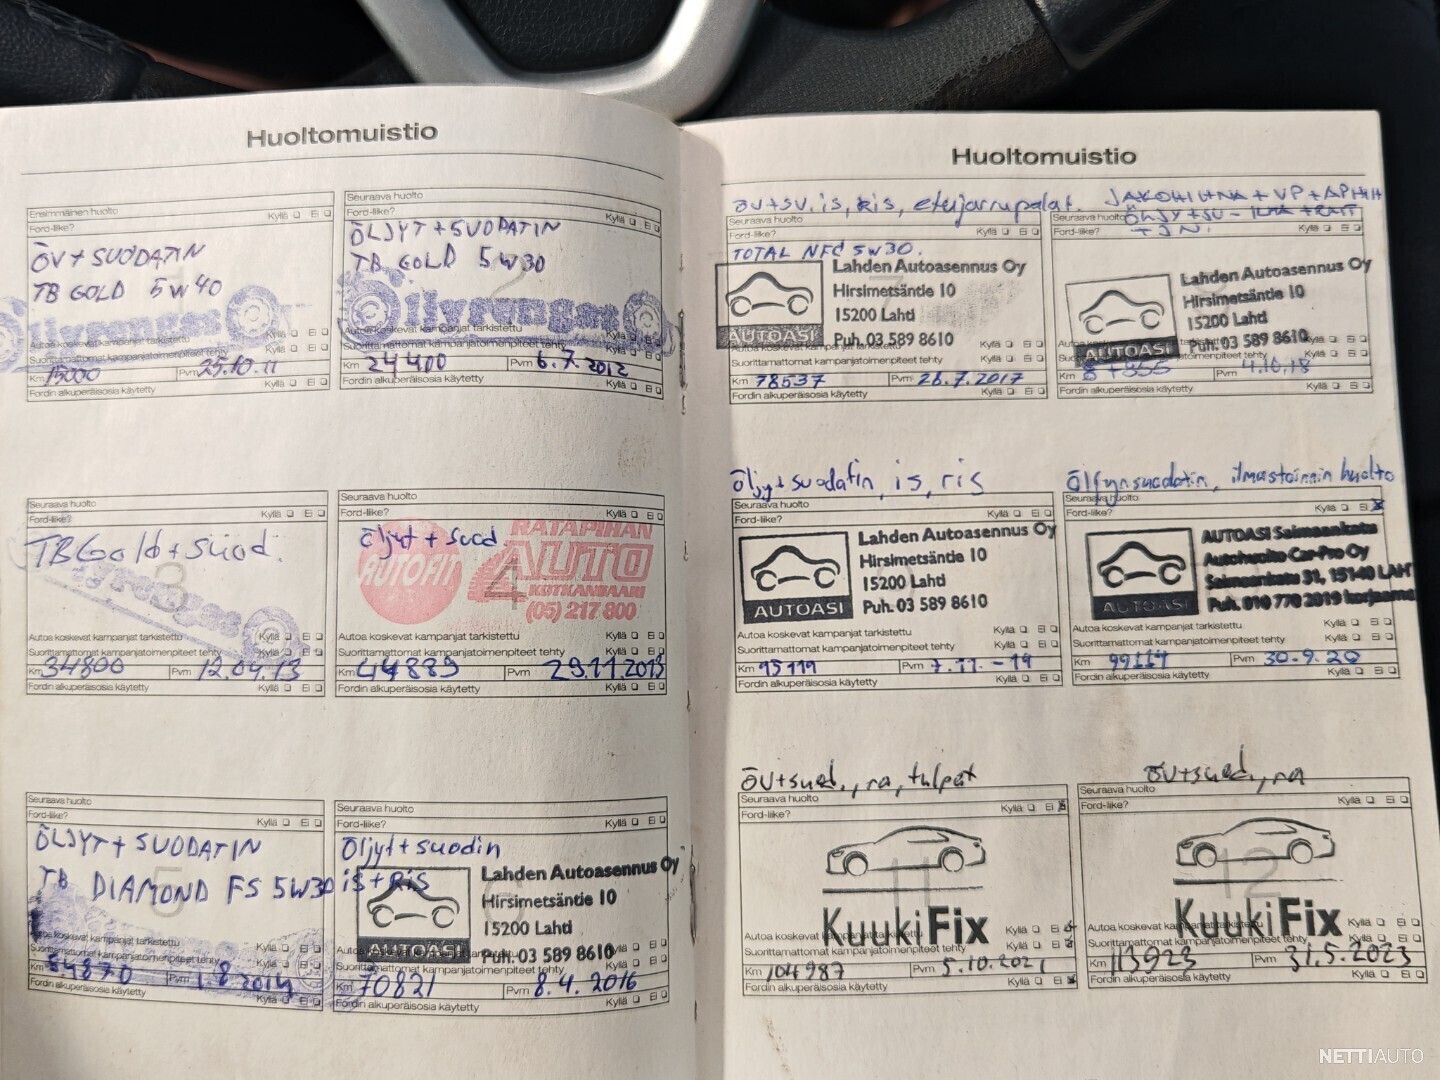 Huoltomuistio
Ensimmäinen huolto
Ford-liike?
Kyllä Ei
ÖV + SUODATIN
TB GOLD 5W40
Autoa koskevat kampanjat tarkistettu
Kyllä Ei
Suorittamattomat kampanjatoimenpiteet tehty
Km 15000 Pvm 25.10.11
Fordin alkuperäisosia käytetty
Kyllä Ei
Seuraava huolto
Ford-liike?
Kyllä Ei
ÖLJYT + SUODATIN
TB GOLD 5W30
Autoa koskevat kampanjat tarkistettu
Suorittamattomat kampanjatoimenpiteet tehty
Kyllä Ei
Km 24400 Pvm 6.7.2012
Fordin alkuperäisosia käytetty
Kyllä Ei
Seuraava huolto
Ford-liike?
Kyllä Ei
TB Gold + suod.
3
Autoa koskevat kampanjat tarkistettu
Kyllä Ei
Suorittamattomat kampanjatoimenpiteet tehty
Kyllä Ei
Km 34800 Pvm 12.04.13
Fordin alkuperäisosia käytetty
Kyllä Ei
Seuraava huolto
Ford-liike?
Kyllä Ei
Öljyt + suod
AUTOFIT
RATAPIHAN
AUTO
KOTKANSAARI
(05) 217 800
4
Autoa koskevat kampanjat tarkistettu
Kyllä Ei
Suorittamattomat kampanjatoimenpiteet tehty
Kyllä Ei
Km 44889 Pvm 29.11.2013
Fordin alkuperäisosia käytetty
Kyllä Ei
Seuraava huolto
Ford-liike?
Kyllä Ei
ÖLJYT + SUODATIN
TB DIAMOND FS 5W30
5
Autoa koskevat kampanjat tarkistettu
Kyllä Ei
Suorittamattomat kampanjatoimenpiteet tehty
Km 54870 Pvm 1.8.2014
Fordin alkuperäisosia käytetty
Kyllä Ei
Seuraava huolto
Ford-liike?
Kyllä Ei
Öljyt + suodin
is + RIS
AUTOASI
Lahden Autoasennus Oy
Hirsimetsäntie 10
15200 Lahti
Puh. 03 589 8610
Suorittamattomat kampanjatoimenpiteet tehty
Kyllä Ei
Km 70821 Pvm 8.4.2016
Fordin alkuperäisosia käytetty
Kyllä Ei
Huoltomuistio
öv+su, is, ris, etujarrupalat.
Seuraava huolto
Ford-liike?
Kyllä Ei
TOTAL NFC 5W30.
AUTOASI
Lahden Autoasennus Oy
Hirsimetsäntie 10
15200 Lahti
Puh. 03 589 8610
Autoa koskevat kampanjat tarkistettu
Kyllä Ei
Suorittamattomat kampanjatoimenpiteet tehty
Kyllä Ei
Km 78537 Pvm 26.7.2017
Fordin alkuperäisosia käytetty
Kyllä Ei
JAKOHIHNA + VP +
Seuraava huolto
ÖLJY + SU -
Ford-liike?
Kyllä Ei
AUTOASI
Lahden Autoasennus Oy
Hirsimetsäntie 10
15200 Lahti
Puh. 03 589 8610
Kyllä Ei
Km Pvm 4.10.18
Fordin alkuperäisosia käytetty
Kyllä Ei
Öljyt suodatin, is, ris
Seuraava huolto
Ford-liike?
Kyllä Ei
AUTOASI
Lahden Autoasennus Oy
Hirsimetsäntie 10
15200 Lahti
Puh. 03 589 8610
Autoa koskevat kampanjat tarkistettu
Kyllä Ei
Suorittamattomat kampanjatoimenpiteet tehty
Kyllä Ei
Km 95119 Pvm 7.11.-19
Fordin alkuperäisosia käytetty
Kyllä Ei
Öljynsuodatin, ilmastoinnin huolto
Seuraava huolto
Ford-liike?
Kyllä Ei
AUTOASI
AUTOASI Saimaankatu
Autohuolto Car-Pro Oy
Saimaankatu 31, 15140 LAHTI
Puh. 010 770 2019 korjaamo
Autoa koskevat kampanjat tarkistettu
Kyllä Ei
Suorittamattomat kampanjatoimenpiteet tehty
Kyllä Ei
Km 99114 Pvm 30.9.20
Fordin alkuperäisosia käytetty
Kyllä Ei
Öv+suod., ra, tulpat
Seuraava huolto
Ford-liike?
Kyllä Ei
11
KuukiFix
Autoa koskevat kampanjat tarkistettu
Kyllä Ei
Suorittamattomat kampanjatoimenpiteet tehty
Kyllä Ei
Km 104987 Pvm 5.10.2021
Fordin alkuperäisosia käytetty
Kyllä Ei
Öv+suod., ra
Seuraava huolto
Ford-liike?
Kyllä Ei
12
KuukiFix
Autoa koskevat kampanjat tarkistettu
Kyllä Ei
Suorittamattomat kampanjatoimenpiteet tehty
Kyllä Ei
Km 113923 Pvm 31.5.2023
Fordin alkuperäisosia käytetty
Kyllä Ei
NETTIAUTO